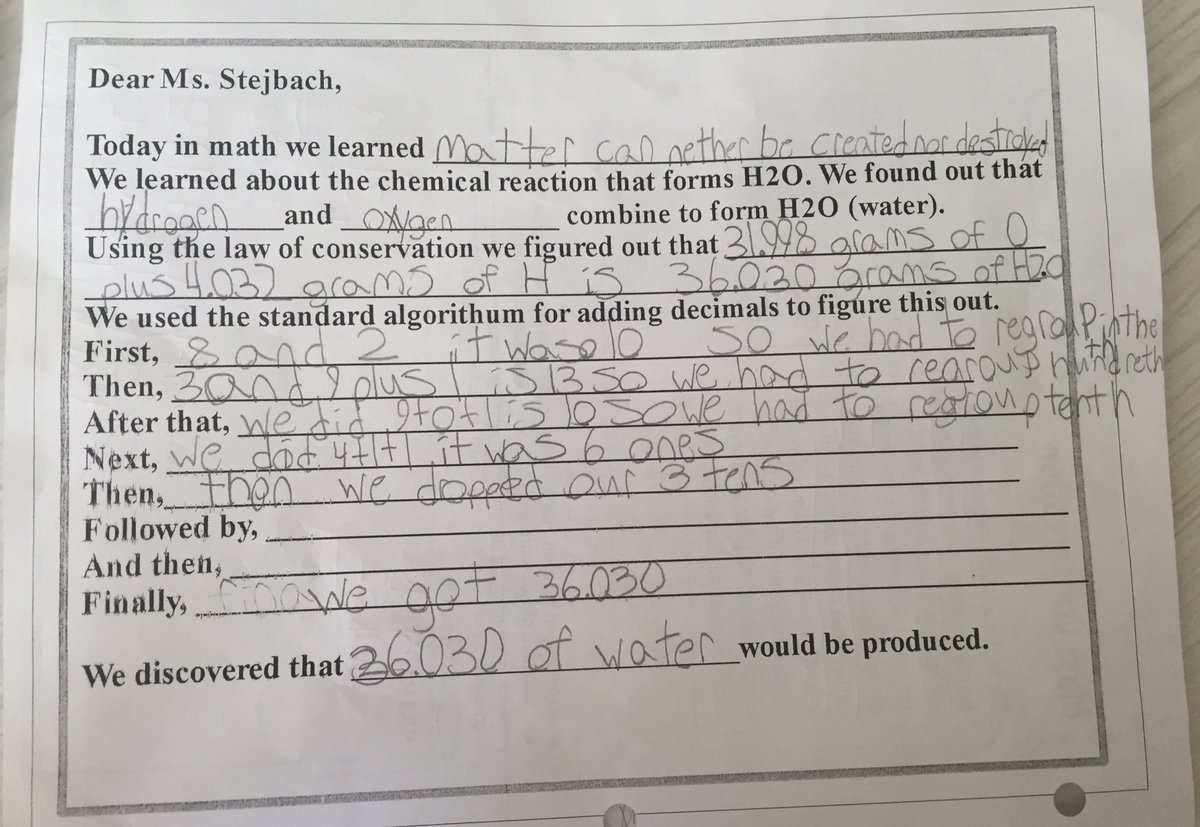 Dear Ms. Stejbach,
Today in math we learned Matter can nether be created nor destroyed
We learned about the chemical reaction that forms H2O. We found out that
hydrogen and oxygen combine to form H2O (water).
Using the law of conservation we figured out that 31.998 grams of O
plus 4.032 grams of H is 36.030 grams of H2O
We used the standard algorithum for adding decimals to figure this out.
First, 8 and 2 it was 10 so we had to regroup in the
Then, 3 and 9 plus 1 is 13 so we had to regroup hundreth
After that, we did 9+0+1 is 10 so we had to regroup tenth
Next, we did 4+1+1 it was 6 ones
Then, then we dropped our 3 tens
Followed by,
And then,
Finally, we got 36.030
We discovered that 36.030 of water would be produced.